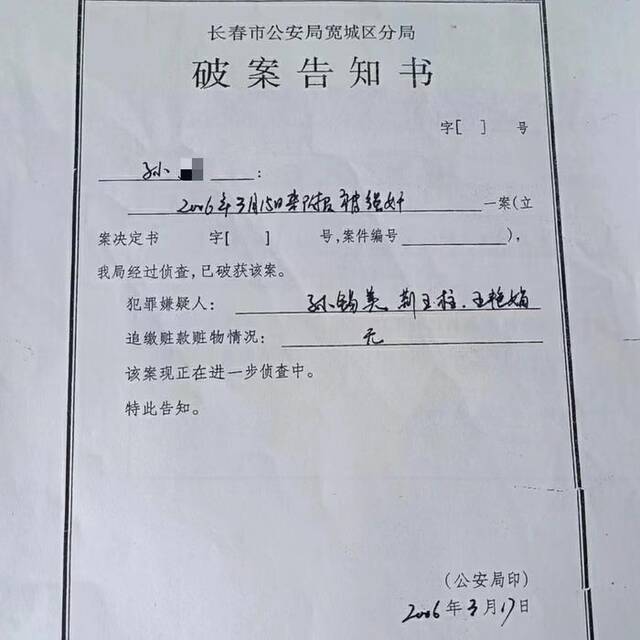 长春市公安局宽城区分局
破案告知书
字[ ] 号
孙 :
2006年3月15日 被强奸 一案(立
案决定书 字[ ] 号,案件编号 ),
我局经过侦查,已破获该案。
犯罪嫌疑人: 孙锡美 靳玉柱、王艳娟
追缴赃款赃物情况: 无
该案现正在进一步侦查中。
特此告知。
(公安局印)
2006年3月17日